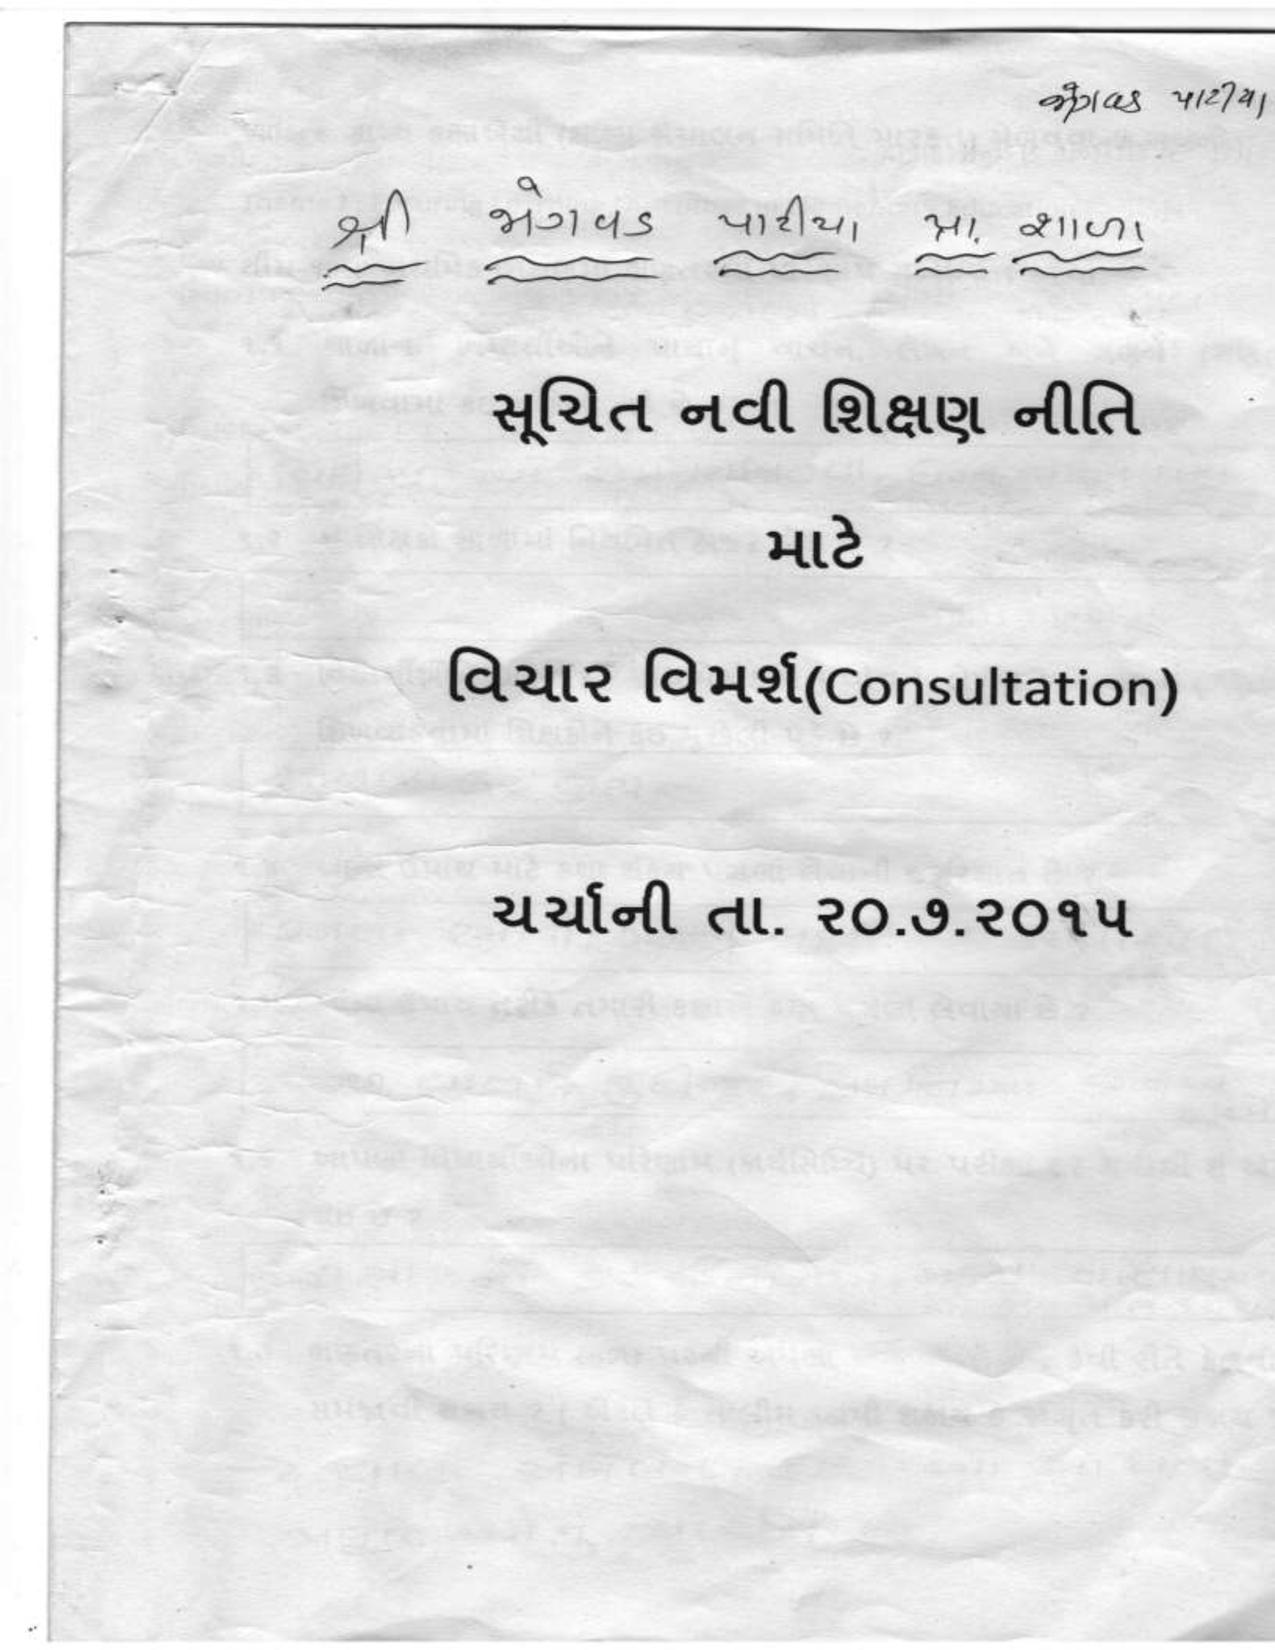 જોગવડ પાટીયા
શ્રી જોગવડ પાટીયા પ્રા. શાળા
સૂચિત નવી શિક્ષણ નીતિ
માટે
વિચાર વિમર્શ(Consultation)
ચર્ચાની તા. ૨૦.૭.૨૦૧૫